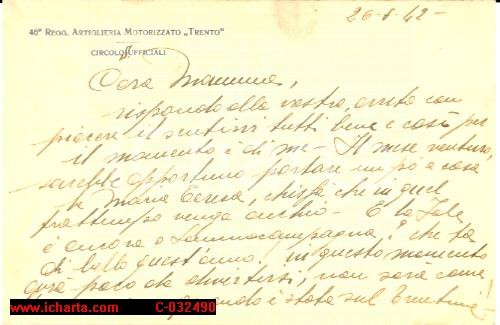 46° REGG. ARTIGLIERIA MOTORIZZATO „TRENTO"
CIRCOLO UFFICIALI
26-8-42-
Cara Mamma,
rispondo alla vostra, avuta con
piacere il sentirvi tutti bene e così per
il momento è di me - Il mese venturo,
sarebbe opportuno portare un pò a casa
la Maria Teresa, chissà che in quel
frattempo venga anch'io - E la
è ancora a ? che fa
di bello quest'anno? in questo momento
avrà poco da divertirsi, non sarà come
è stata sul
www.icharta.com C-032490